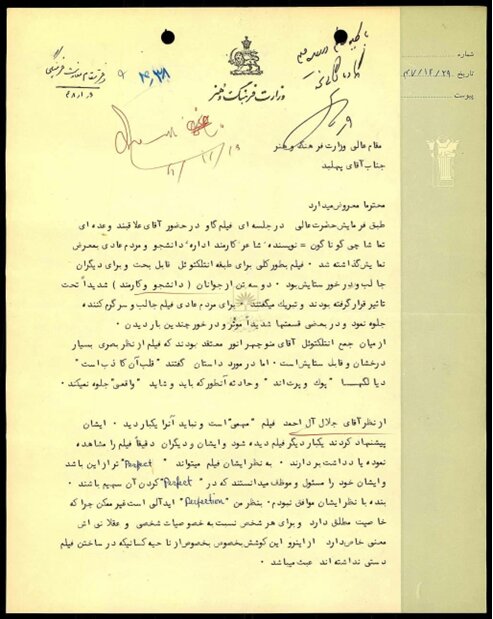 شماره
تاریخ ۴۷/۱۲/۲۹
پیوست
وزارت فرهنگ و هنر
۴۸/۱/۵
مقام عالی وزارت فرهنگ و هنر
جناب آقای پهلبد
محترما معروض میدارد
طبق فرمایش حضرت عالی در جلسه ای فیلم گاو در حضور آقای علاقبند و عده ای
تماشاچی گوناگون = نویسنده ٬ شاعر کارمند اداره ٬ دانشجو و مردم عادی بمعرض
نمایش گذاشته شد . فیلم بطور کلی برای طبقه انتلکتوئل قابل بحث و برای دیگران
جالب و در خور ستایش بود . دو سه تن از جوانان ( دانشجو و کارمند ) شدیداً تحت
تاثیر قرار گرفته بودند و تبریک میگفتند . برای مردم عادی فیلم جالب و سرگرم کننده
جلوه نمود و در بعضی قسمتها شدیداً موثر و در خور چندین بار دیدن .
از میان جمع انتلکتوئل آقای منوچهر انور معتقد بودند که فیلم از نظر بصری بسیار
درخشان و قابل ستایش است . اما در مورد داستان گفتند " قلب آن کاذب است "
دیالگها " پوک و پرت اند " وحادثه آنطور که باید و شاید " واقعی " جلوه نمیکند .
از نظر آقای جلال آل احمد فیلم " مهمی " است و نباید آنرا یکبار دید . ایشان
پیشنهاد کردند یکبار دیگر فیلم دیده شود و ایشان و دیگران دقیقاً فیلم را مشاهده
نموده یا دداشت بردارند . به نظر ایشان فیلم میتواند " Perfect " تر از این باشد
و ایشان خود را مسئول و موظف میدانستند که در " Perfect " کردن آن سهیم باشند .
بنده با نظر ایشان موافق نبودم . بنظر من " Perfection " ایدآلی است غیر ممکن چرا که
خاصیت مطلق دارد و برای هر شخص نسبت به خصوصیات شخصی و عقلانی اش
معنی خاص دارد از اینرو این کوشش بخصوص بخصوص از ناحیه کسانیکه در ساختن فیلم
دستی نداشته اند عبث میباشد .